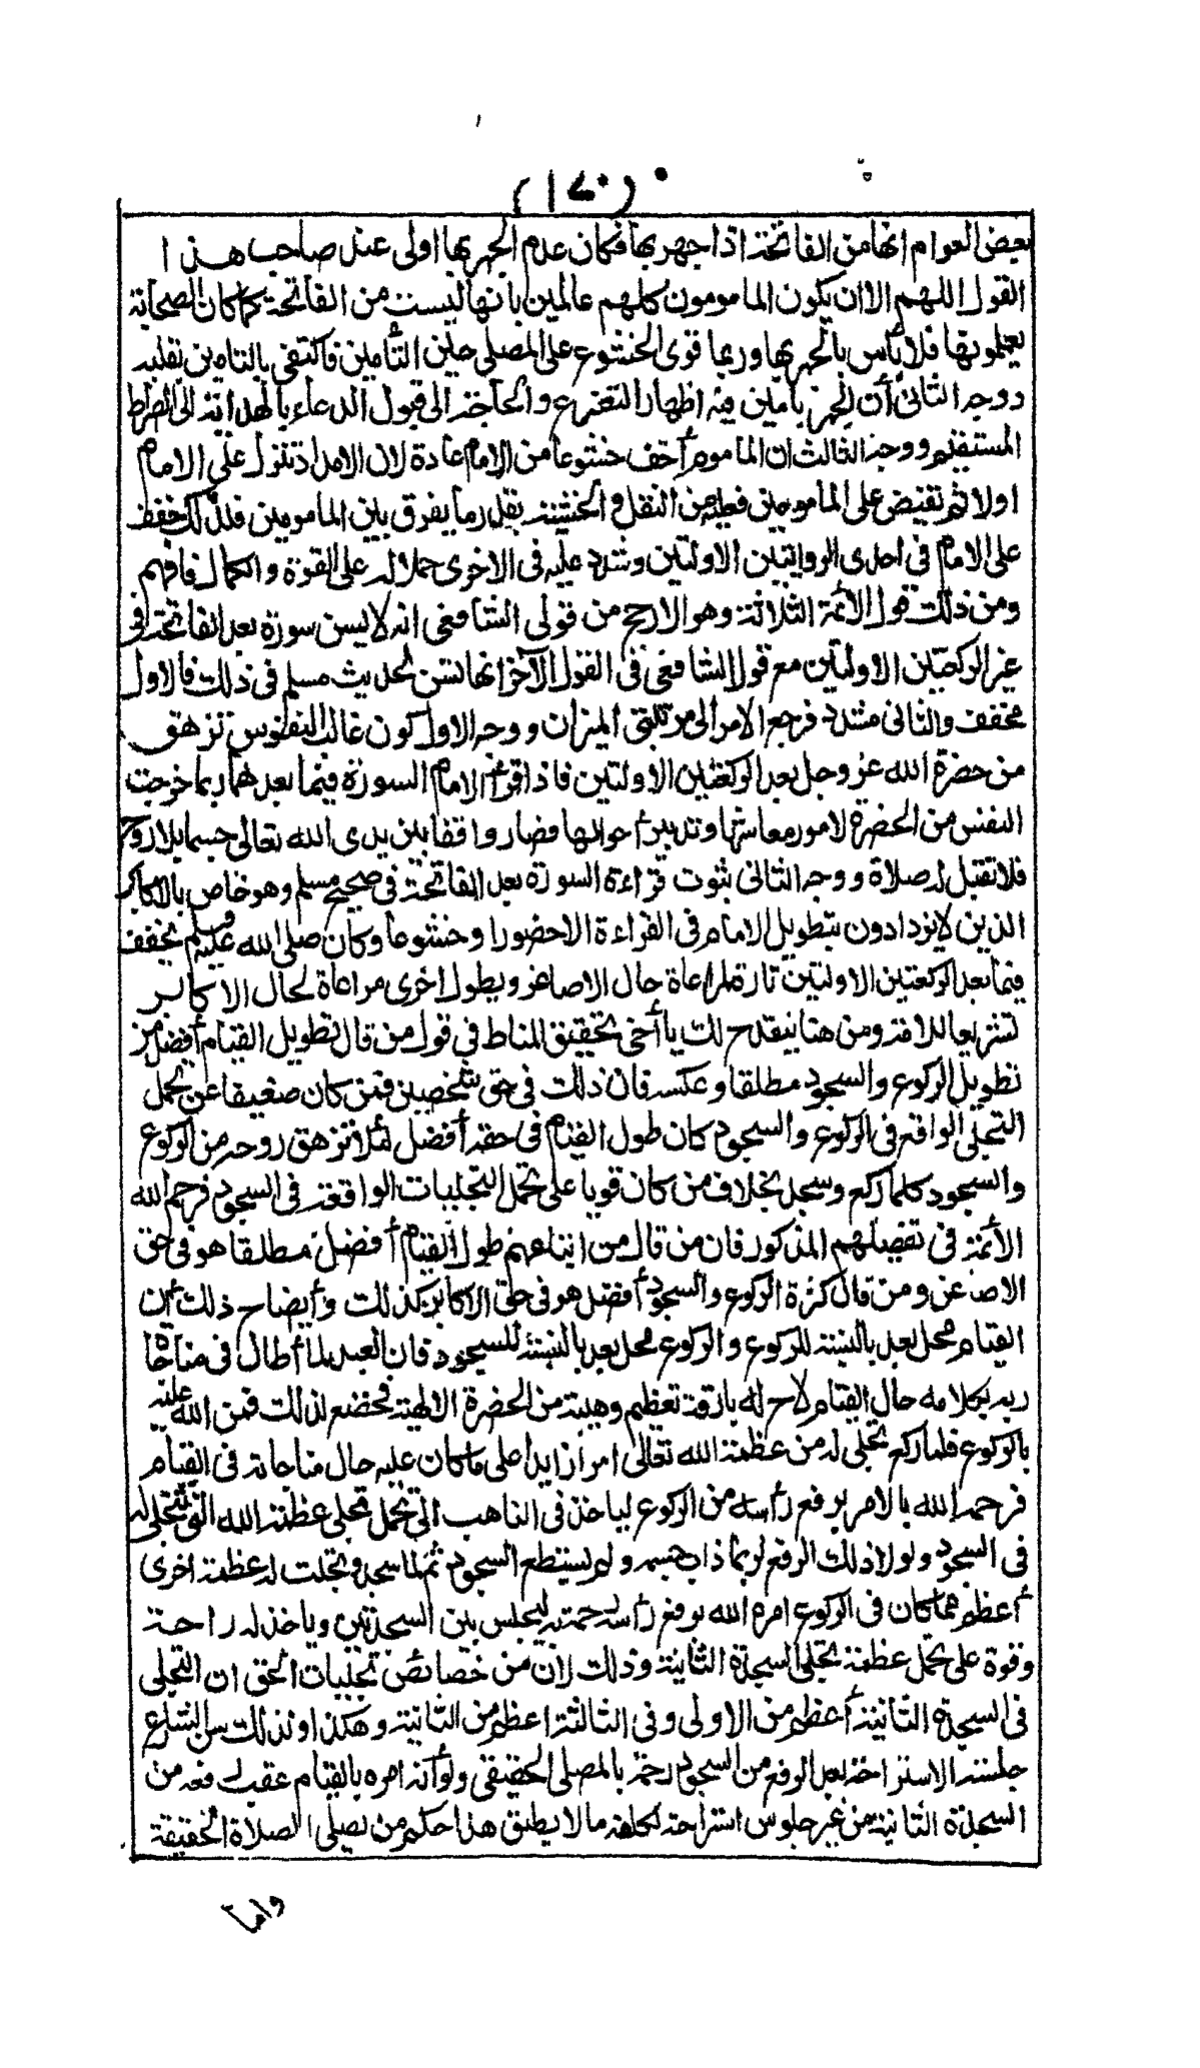 (١٧٠)
بعض العوام انها من الفاتحة اذا جهر بها فكان عدم الجهر بها اولى عند صاحب هذا
القول اللهم الا ان يكون المامومون كلهم عالمين بانها ليست من الفاتحة كما كان الصحابة
يعلمونها فلا بأس بالجهر بها وربما قوى الخشوع على المصلى حين التأمين فاكتفى بالتامين بقلبه
ووجه الثانى أن الجهر بآمين فيه اظهار التضرع والحاجة الى قبول الدعاء بالهداية الى الصراط
المستقيم ووجه الثالث ان الماموم أخف خشوعا من الامام عادة لان الامداد تنزل على الامام
اولا ثم تفيض على المامومين فعليه من الثقل و الخشية بقدر ما يفرق بين المامومين فلذلك خفف
على الامام فى احدى الروايتين الاولتين وشدد عليه فى الاخرى حملا له على القوة والكمال فافهم
ومن ذلك قول الأئمة الثلاثة وهو الارجح من قولى الشافعى انه لا يسن سورة بعد الفاتحة فى
غير الركعتين الاولتين مع قول الشافعى فى القول الآخر انها تسن لحديث مسلم فى ذلك فالاول
مخفف والثانى مشدد فرجع الامر الى مرتبتى الميزان ووجه الاول كون غالب النفوس تزهق
من حضرة الله عز وجل بعد الركعتين الاولتين فاذا قرأ الامام السورة فيما بعد هما ربما خرجت
النفس من الحضرة لامور معاشها وتدبير أحوالها فصار واقفا بين يدى الله تعالى جسما بلا روح
فلا تقبل له صلاة ووجه الثانى ثبوت قراءة السورة بعد الفاتحة فى صحيح مسلم وهو خاص بالاكابر
الذين لا يزدادون بتطويل الامام فى القراءة الا حضورا وخشوعا وكان صلى الله عليه وسلم يخفف
فيما بعد الركعتين الاولتين تارة لمراعاة حال الاصاغر ويطول اخرى مراعاة لحال الاكابر
تشريعا للامة ومن هنا ينقدح لك يا أخى تحقيق المناط فى قول من قال تطويل القيام أفضل من
تطويل الركوع والسجود مطلقا وعكسه فان ذلك فى حق شخصين فمن كان ضعيفا عن تحمل
التجلى الواقع فى الركوع والسجود كان طول القيام فى حقه أفضل لئلا تزهق روحه من الركوع
والسجود كلما ركع وسجد بخلاف من كان قويا على تحمل التجليات الواقعة فى السجود فرحم الله
الأئمة فى تفصيلهم المذكور فان من قال من اتباعهم طول القيام أفضل مطلقا هو فى حق
الاصاغر ومن قال كثرة الركوع والسجود أفضل هو فى حق الاكابر كذلك وأيضاح ذلك أن
القيام محل بعد بالنسبة للركوع والركوع محل بعد بالنسبة للسجود فان العبد لما أطال فى مناجاة
ربه بكلامه حال القيام لاح له بارقة تعظيم وهيبة من الحضرة الالهية فخضع لذلك فمن الله عليه
بالركوع فلما ركع تجلى له من عظمة الله تعالى امر زايد على ما كان عليه حال مناجاته فى القيام
فرحمه الله بالامر برفع رأسه من الركوع لياخذ فى التاهب الى تحمل تجلى عظمة الله التى تتجلى له
فى السجود ولولا ذلك الرفع لربما ذاب جسمه ولم يستطع السجود ثم لما سجد وتجلت له عظمة اخرى
أعظم مما كان فى الركوع امره الله برفع رأسه رحمة به ليجلس بين السجدتين وياخذ له راحة
وقوة على تحمل عظمة تجلى السجدة الثانية وذلك لأن من خصائص تجليات الحق ان التجلى
فى السجدة الثانية أعظم من الاولى وفى الثالثة اعظم من الثانية وهكذا ولذلك سن الشارع
جلسة الاستراحة بعد الرفع من السجود رحمة بالمصلى الحقيقى ولو أنه امره بالقيام عقب رفعه من
السجدة الثانية من غير جلوس استراحة لكلفه ما لا يطيق هذا حكم من يصلى الصلاة الحقيقة
واما